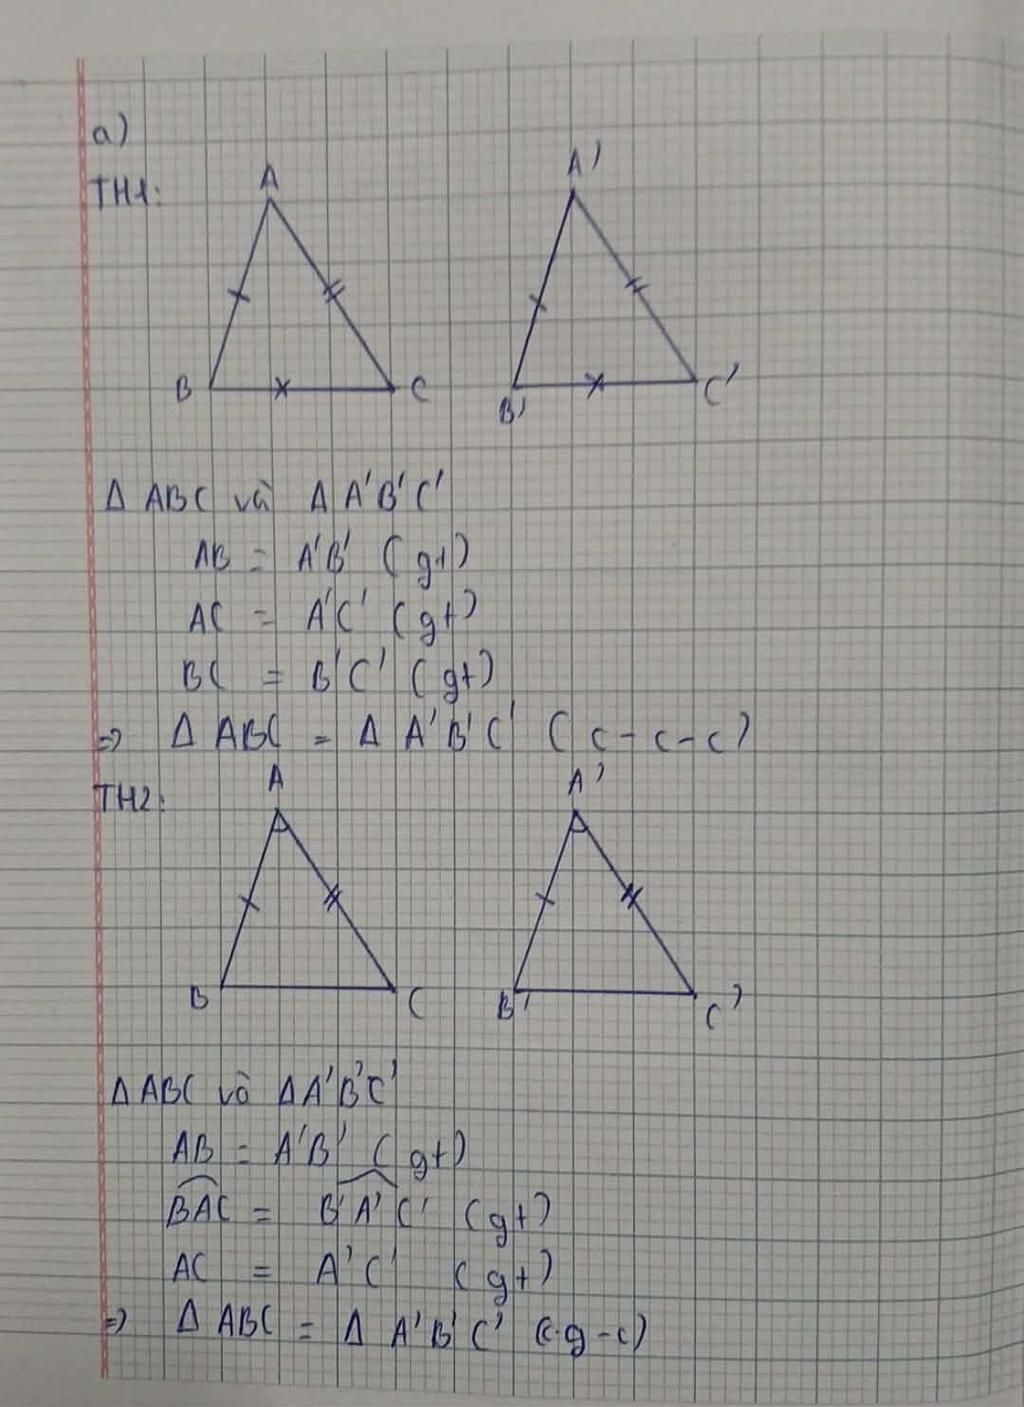 a)
TH1:
A A'
B C B' C'
Δ ABC và Δ A'B'C'
AB = A'B' (gt)
AC = A'C' (gt)
BC = B'C' (gt)
=> Δ ABC = Δ A'B'C' (c-c-c)
TH2:
A A'
B C B' C'
Δ ABC và Δ A'B'C'
AB = A'B' (gt)
\widehat{BAC} = \widehat{B'A'C'} (gt)
AC = A'C' (gt)
=> Δ ABC = Δ A'B'C' (c.g-c)